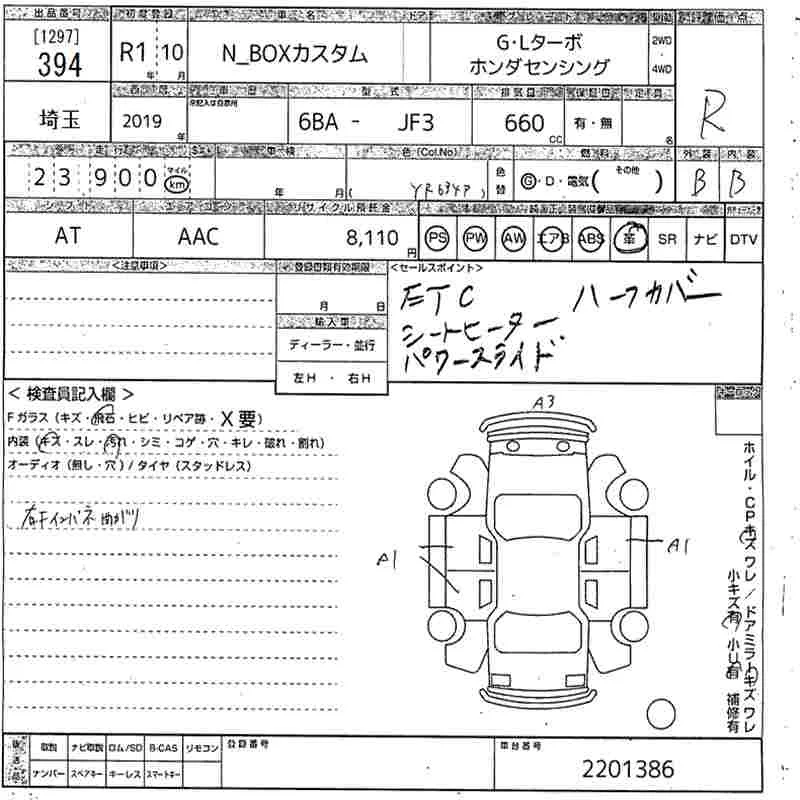 出品番号 初度登録 車名 ドア グレード 駆動 評価点
[1297]
394
R1年 10月
N_BOXカスタム
G・Lターボ
ホンダセンシング
2WD
・
4WD
R
埼玉
2019年
車歴
型式
6BA - JF3
排気量
660cc
有・無
名
走行
23900
マイル
km
車検
年 月
色(Col.No)
(YR634P)
色替
燃料
G・D・電気(その他)
外装 内装
B B
シフト エアコン リサイクル預託金
AT AAC 8,110円
PS PW AW エアB ABS 革 SR ナビ DTV
<注意事項>
登録書類有効期限
月 日
輸入車
ディーラー・並行
左H ・ 右H
<セールスポイント>
ETC ハーフカバー
シートヒーター
パワースライド
< 検査員記入欄 >
Fガラス(キズ・飛石・ヒビ・リペア跡・X要)
内装(キズ・スレ・汚れ・シミ・コゲ・穴・キレ・破れ・割れ)
オーディオ(無し・穴)/タイヤ(スタッドレス)
右Fインパネ曲がり
A3
A1
A1
ホイル・CPキズ ワレ/ドアミラーキズ ワレ
小キズ有 小U有 補修有
取説 ナビ取説 ロム/SD B-CAS リモコン
ナンバー スペアキー キーレス スマートキー
登録番号
車台番号
2201386